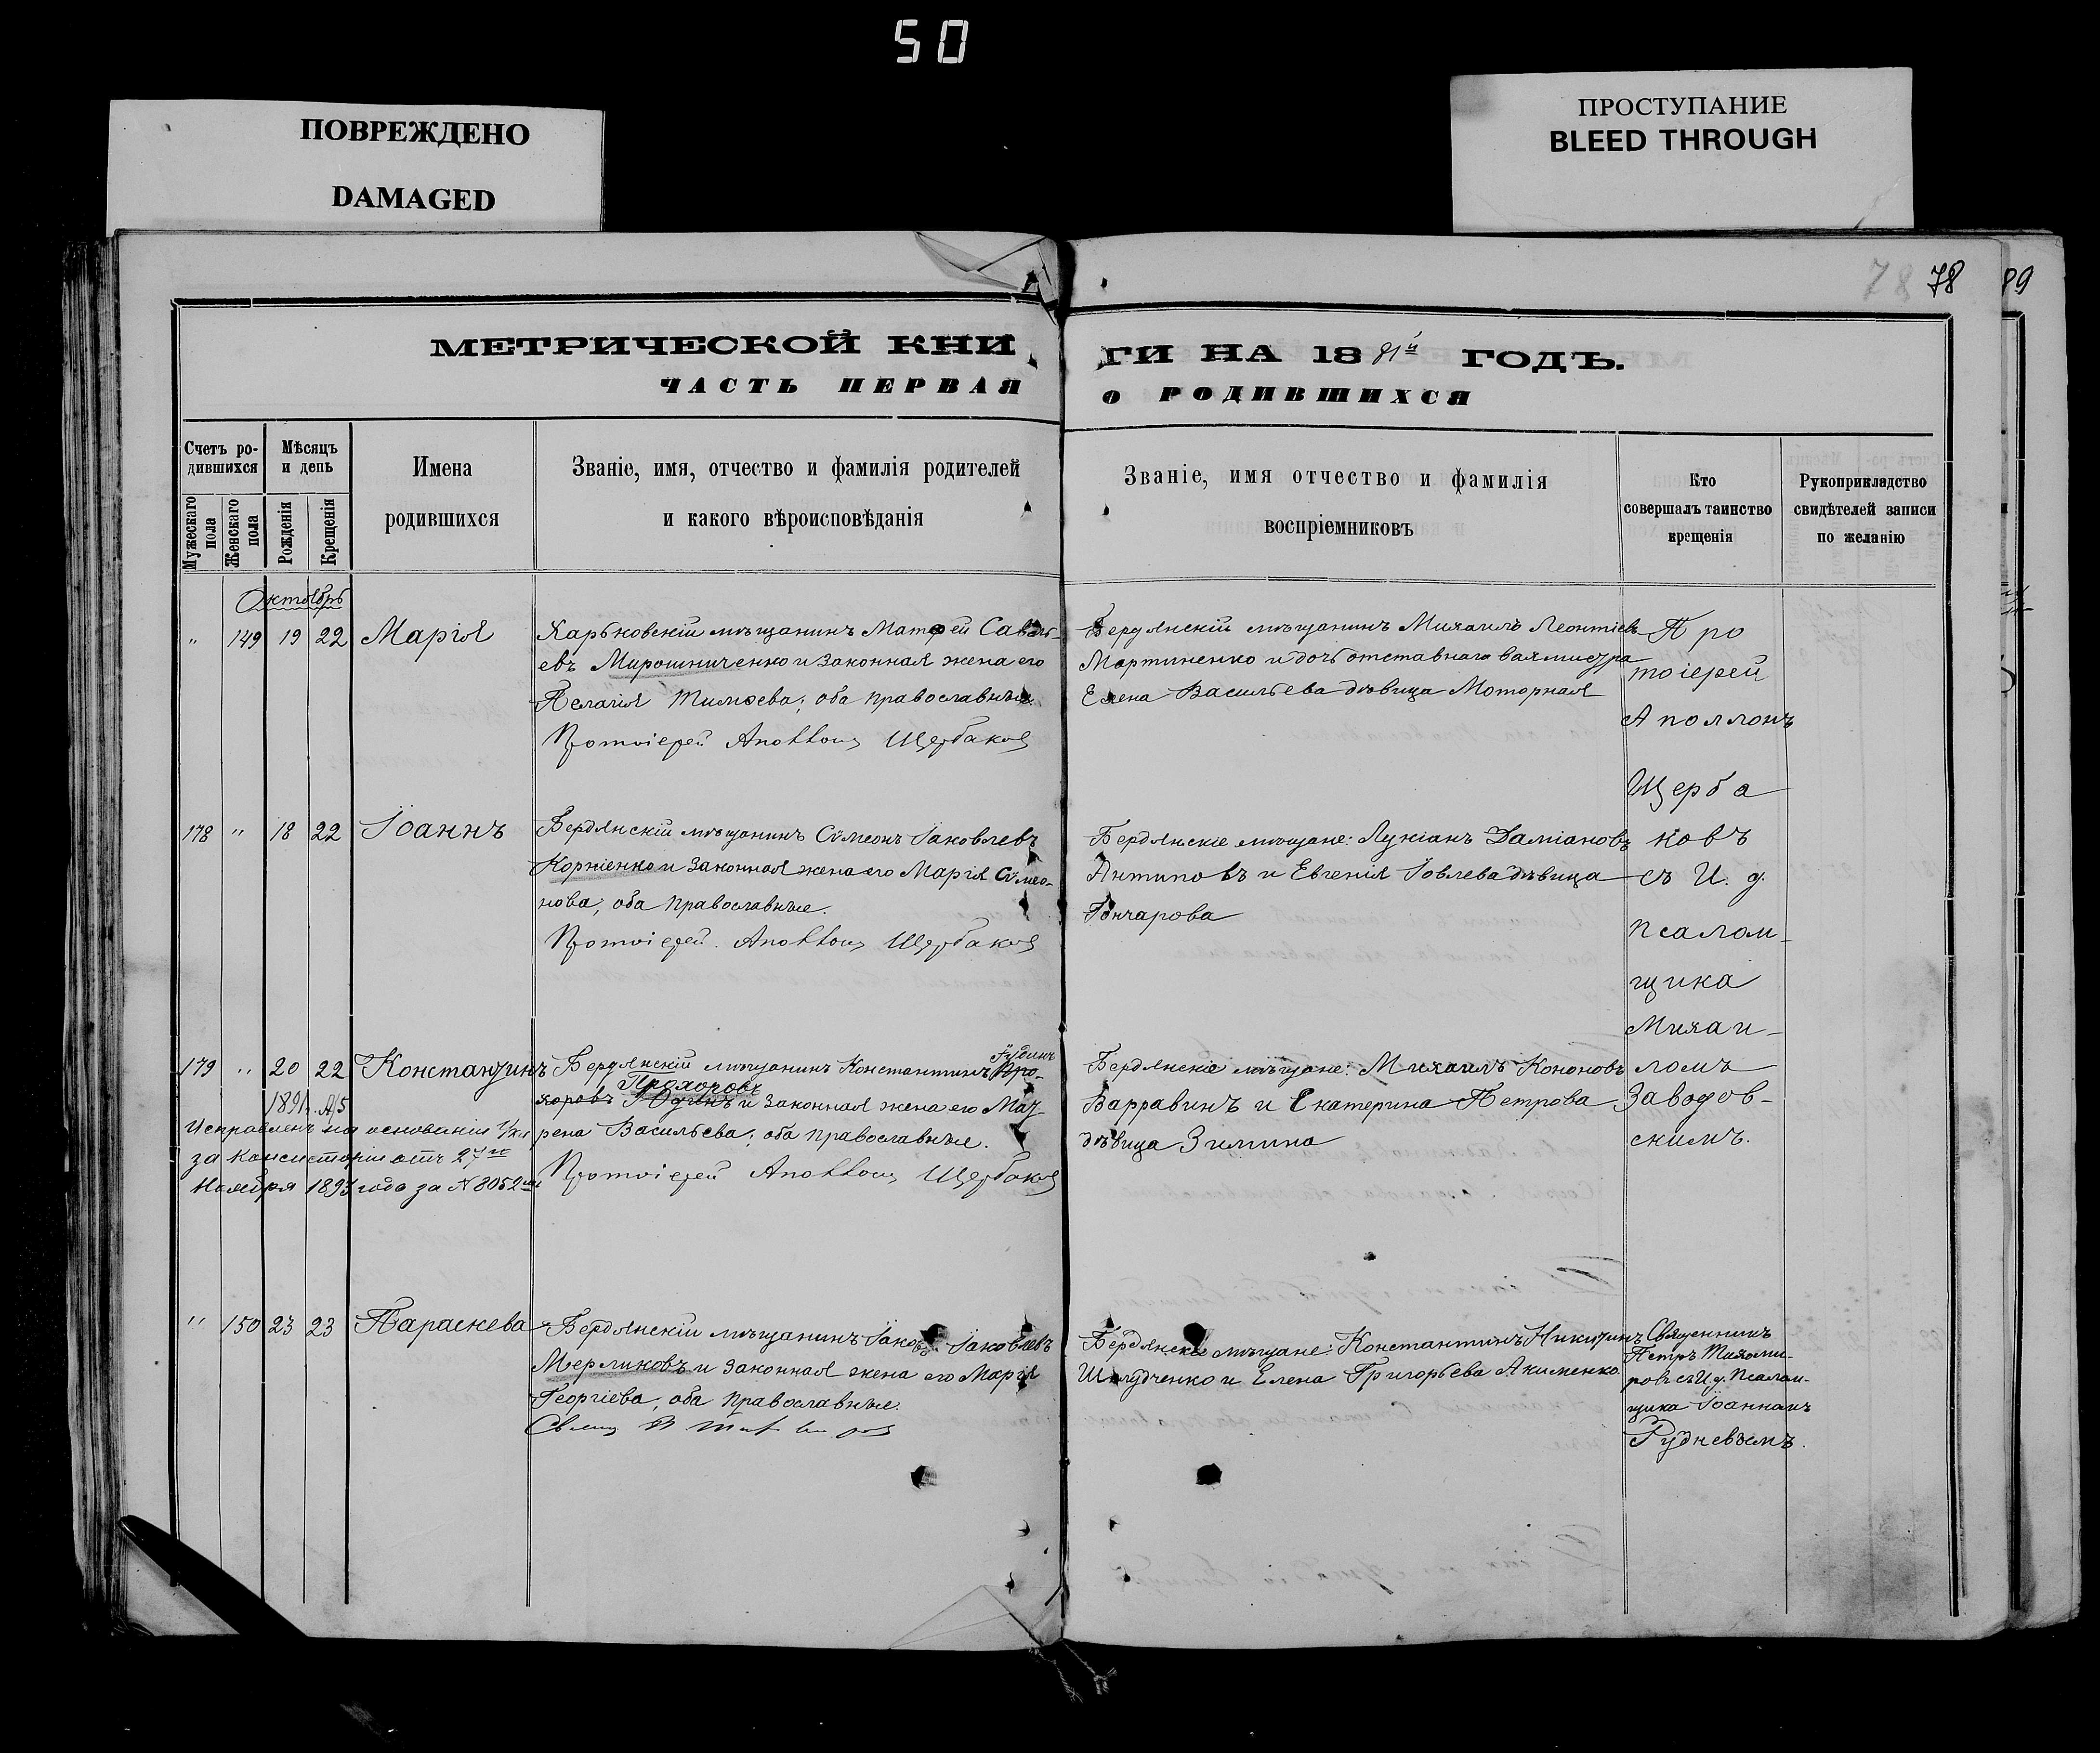 50
ПОВРЕЖДЕНО
DAMAGED
ПРОСТУПАНИЕ
BLEED THROUGH
78 78 89
МЕТРИЧЕСКОЙ КНИ
ГИ НА 18 81й ГОДЪ.
ЧАСТЬ ПЕРВАЯ
О РОДИВШИХСЯ
Счетъ ро-
дившихся
Мѣсяцъ
и день
Мужескаго
пола
Женскаго
пола
Рожденія
Крещенія
Имена
родившихся
Званіе, имя, отчество и фамилія родителей
и какого вѣроисповѣданія
Званіе, имя отчество и фамилія
воспріемниковъ
Кто
совершалъ таинство
крещенія
Рукоприкладство
свидѣтелей записи
по желанію
Октябрь
" 149 19 22 Марія
Харьковскій мѣщанинъ Матѳей Савель-
евъ Мирошниченко и законная жена его
Пелагія Тимоѳева; оба православные.
Протоіерей Аполлонъ Щербаковъ
Бердянскій мѣщанинъ Михаилъ Леонтіевъ
Мартиненко и дочь отставнаго вахмистра
Елена Васильева дѣвица Моторная
Про
тоіерей
Аполлонъ
Щерба
ковъ
съ И. д.
псалом-
щика
Михаи-
ломъ
Заводов-
скимъ.
178 " 18 22 Іоаннъ
Бердянскій мѣщанинъ Сѵмеонъ Іаковлевъ
Корніенко и законная жена его Марія Сѵмео-
нова; оба православные.
Протоіерей Аполлонъ Щербаковъ
Бердянскіе мѣщане: Лукіанъ Даміановъ
Антиповъ и Евгенія Іовлева дѣвица
Гончарова
179 " 20 22 Константинъ
Бердянскій мѣщанинъ Константинъ Про-
хоровъ
Прохоровъ
и законная жена его Мат-
рена Васильева; оба православные.
Протоіерей Аполлонъ Щербаковъ
Исправленъ на основаніи
за Консисторіи отъ 27го
Ноября 1893 года за № 8052
Бердянскіе мѣщане: Михаилъ Кононовъ
Варравинъ и Екатерина Петрова
дѣвица Зимина
" 150 23 23 Параскева
Бердянскій мѣщанинъ Іаковъ Іаковлевъ
Мерликовъ и законная жена его Марія
Георгіева; оба православные.
Бердянскіе мѣщане: Константинъ Никитинъ
Шелудченко и Елена Григорьева Акименко.
Священникъ
Петръ Тихоми-
ровъ съ И. д. псалом-
щика Іоанномъ
Рудневымъ.